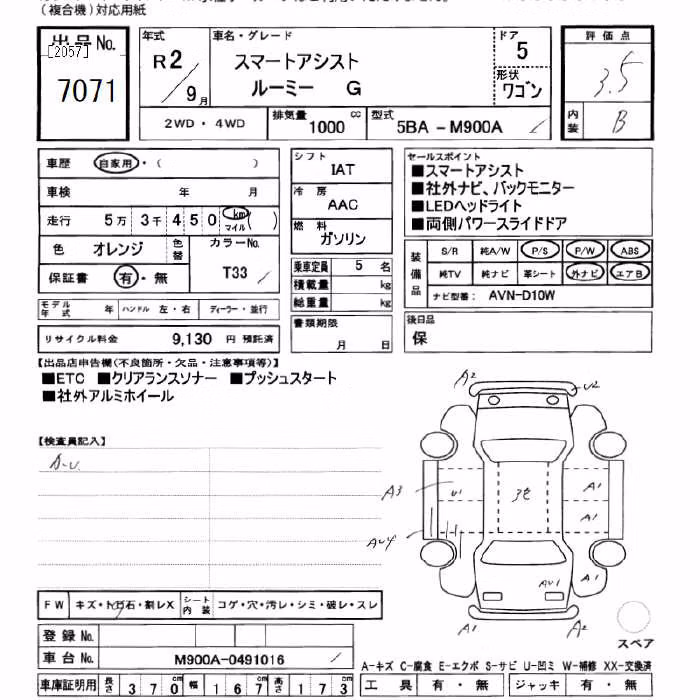 （複合機）対応用紙
出品No.
[2057]
7071
年式
R2/9月
車名・グレード
スマートアシスト
ルーミー G
ドア
5
形状
ワゴン
評価点
3.5
内装
B
2WD・4WD
排気量
1000cc
型式
5BA-M900A
車歴 自家用・（ ）
車検 年 月
走行 5万3千450km マイル( )
色 オレンジ
色替
カラーNo.
T33
保証書 有・無
モデル年式 年 ハンドル 左・右 ディーラー・並行
リサイクル料金 9,130円 預託済
シフト
IAT
冷房
AAC
燃料
ガソリン
乗車定員 5名
積載量 kg
総重量 kg
書類期限
月 日
セールスポイント
■スマートアシスト
■社外ナビ、バックモニター
■LEDヘッドライト
■両側パワースライドドア
装備品
S/R 純A/W P/S P/W ABS
純TV 純ナビ 革シート 外ナビ エアB
ナビ型番： AVN-D10W
後日品
保
【出品店申告欄(不良箇所・欠品・注意事項等)】
■ETC ■クリアランスソナー ■プッシュスタート
■社外アルミホイール
【検査員記入】
A2
U2
A3
U1
A1
A1
A1
AU1
A1
A2
スペア
FW キズ・トビ石・割レX
シート内装 コゲ・穴・汚レ・シミ・破レ・スレ
登録No.
車台No. M900A-0491016
車庫証明用 長さ 370 幅 167 高さ 173
A-キズ C-腐食 E-エクボ S-サビ U-凹ミ W-補修 XX-交換済
工具 有・無 ジャッキ 有・無